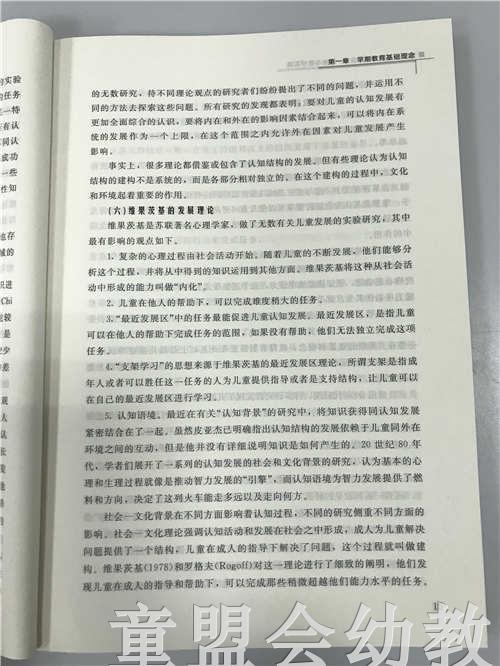 第一章 早期教育基础理念
的无数研究，待不同理论观点的研究者们纷纷提出了不同的问题，并运用不
同的方法去探索这些问题。所有研究的发现都表明：要对儿童的认知发展有
更加全面综合的认识，要将内在和外在的影响因素结合起来，可以将内在系
统的发展作为一个上限，在这个范围之内允许外在因素对儿童发展产生
影响。
事实上，很多理论都借鉴或包含了认知结构的发展。但有些理论认为认知
结构的建构不是系统的，而是各部分相对独立的。在这个建构的过程中，文化
和环境起着重要的作用。
(六)维果茨基的发展理论
维果茨基是苏联著名心理学家，做了无数有关儿童发展的实验研究，其中
最有影响的观点如下。
1. 复杂的心理过程由社会活动开始。随着儿童的不断发展，他们能够分
析这个过程，并将从中得到的知识运用到其他方面。维果茨基将这种从社会活
动中形成的能力叫做“内化”。
2. 儿童在他人的帮助下，可以完成难度稍大的任务。
3.“最近发展区”中的任务最能促进儿童认知发展。最近发展区是指儿童
可以在他人的帮助下完成任务的范围，如果没有帮助，他们无法独立完成这项
任务。
4.“支架学习”的思想来源于维果茨基的最近发展区理论，所谓支架是指成
年人或者可以胜任这一任务的人为儿童提供指导或者是支持结构，让儿童可以
在自己的最近发展区进行学习。
5. 认知语境。最近在有关“认知背景”的研究中，将知识获得同认知发展
紧密结合在了一起。虽然皮亚杰已明确指出认知结构的发展依赖于儿童同外在
环境之间的互动，但是他并没有详细说明知识是如何产生的。20 世纪 80 年
代，学者们展开了一系列的认知发展的社会和文化背景的研究，认为基本的心
理和生理过程就像是推动智力发展的“引擎”，而认知语境为智力发展提供了燃
料和方向，决定了这列火车能走多远以及走向何方。
社会—文化背景在不同方面影响着认知过程，不同的研究侧重不同方面的
影响。社会—文化理论强调认知活动和发展在社会之中形成，成人为儿童解决
问题提供了一个结构，儿童在成人的指导下解决了问题，这个过程就叫做建
构。维果茨基(1978)和罗格夫(Rogoff)对这一理论进行了细致的阐明，他们发
现儿童在成人的指导和帮助下，可以完成那些稍微超越他们能力水平的任务。
童盟会幼教